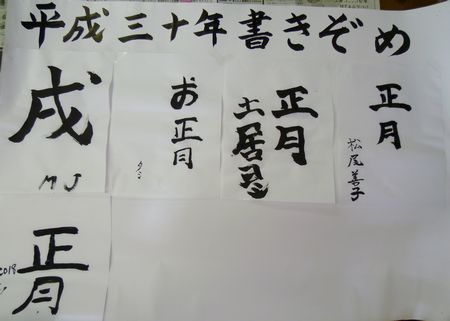 平成三十年書きぞめ
戌
MJ
お正月
タミ
正月
土居
正月
松尾善子
正月
2018